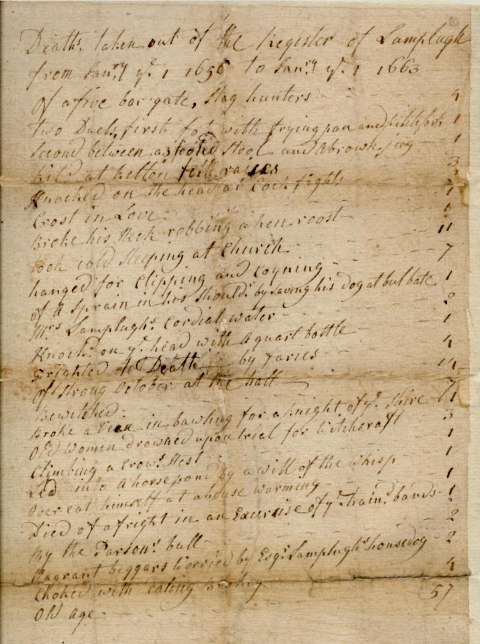 Deaths taken out of the Register of Lamplugh
from Janry ye 1 1656 to Janry ye 1 1663
Of a five bar gate, Stag hunters - - - 4
two Duels, first fot with frying pan and pitchforks 1
Second between a 3 footed Stool and a brown jug - 1
Kild at Kelton fell races - - - 3
Knocked on the head at Cock fight
Crost in Love - - - 1
Broke his Neck robbing a hen roost - - - 1
took cold sleeping at Church - - - 11
hanged for Clipping and Coyning - - - 7
of A Sprain in his Shoulder by saving his dog at bul bate 1
Mrs Lamplughs Cordial water - - - 2
Knockd on ye head with A quart bottle - - - 1
frighted to Death by faries - - - 4
Of strong October at the hall - - - 14
bewitched - - - 7
Broke a Vein in bawling for a Knight of ye Shire 1
Old Women drowned upon trial for Witchcraft 3
Climbing a Crows Nest - - - 1
Led into a horsepond by a will of the whisp 1
Over eat himself at a house warming - - - 1
Died of a fright in an Exercise of ye train bands 1
By the Parsons bull - - - 2
Vagrant Beggars worried by Esqr Lamplughs housedog 2
Choked with eating barley - - - 4
Old age - - - 57